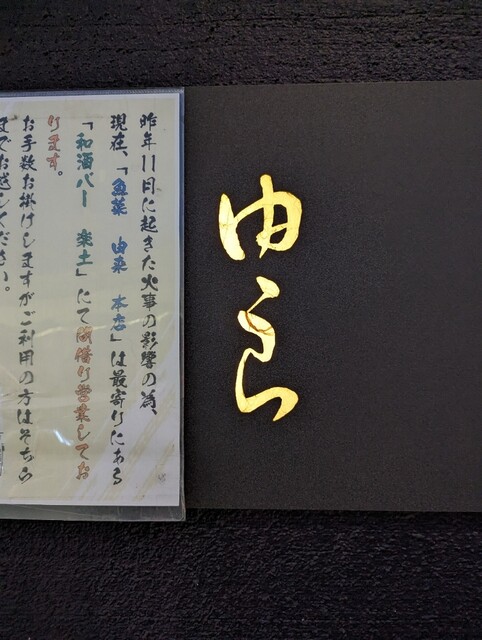 由良
昨年11月に起きた火事の影響の為、
現在、「魚菜 由良 本店」は最寄りにある
「和酒バー 楽土」にて間借り営業してお
ります。
お手数お掛けしますがご利用の方はそちら
までお越しください。